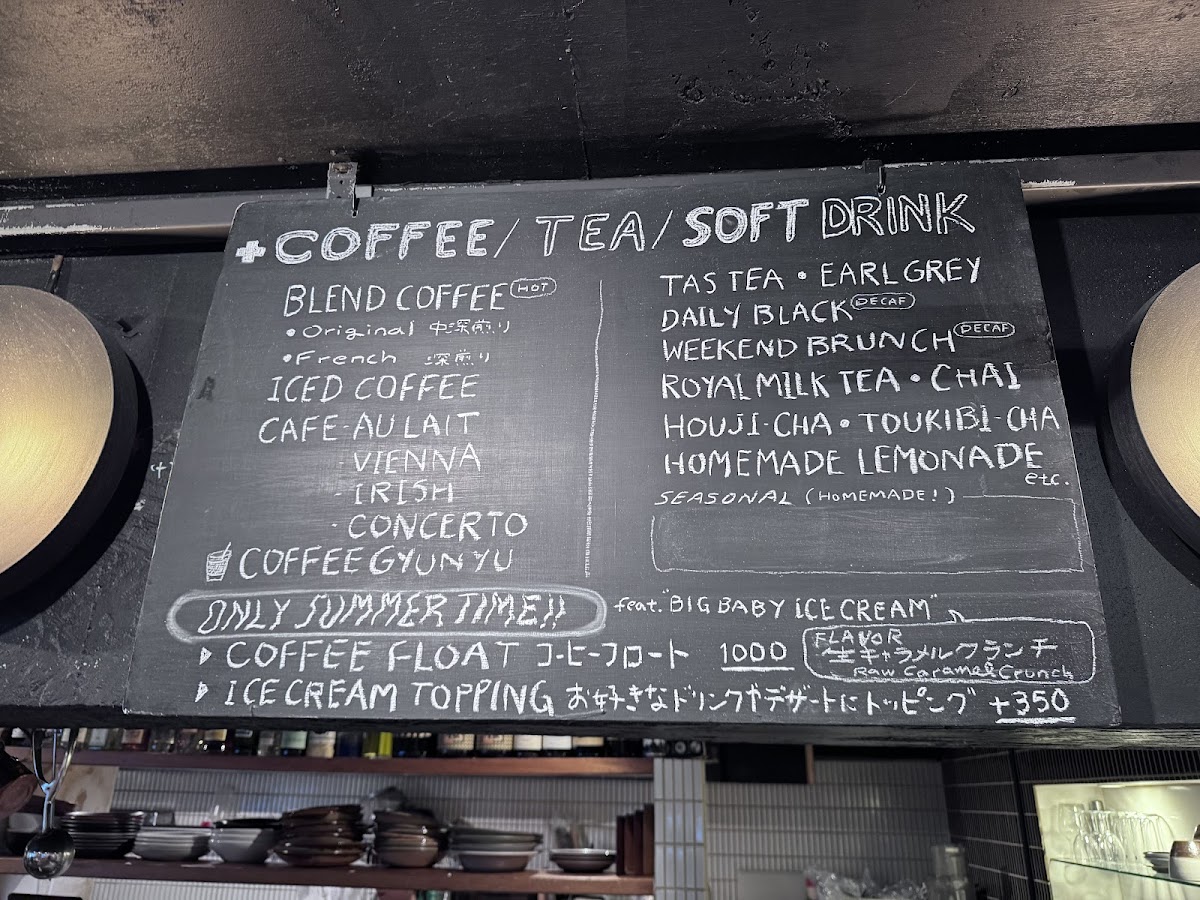 +COFFEE/TEA/SOFT DRINK
BLEND COFFEE HOT
•Original 中深煎り
•French 深煎り
ICED COFFEE
CAFE-AU LAIT
-VIENNA
-IRISH
-CONCERTO
COFFEE GYUNYU
TAS TEA • EARL GREY
DAILY BLACK DECAF
WEEKEND BRUNCH DECAF
ROYAL MILK TEA • CHAI
HOUJI-CHA • TOUKIBI-CHA
HOMEMADE LEMONADE
etc.
SEASONAL (HOMEMADE!)
ONLY SUMMER TIME!! feat."BIG BABY ICE CREAM"
▷ COFFEE FLOAT コーヒーフロート 1000
FLAVOR
生キャラメルクランチ
Raw Caramel Crunch
▷ ICE CREAM TOPPING お好きなドリンクやデザートにトッピング +350